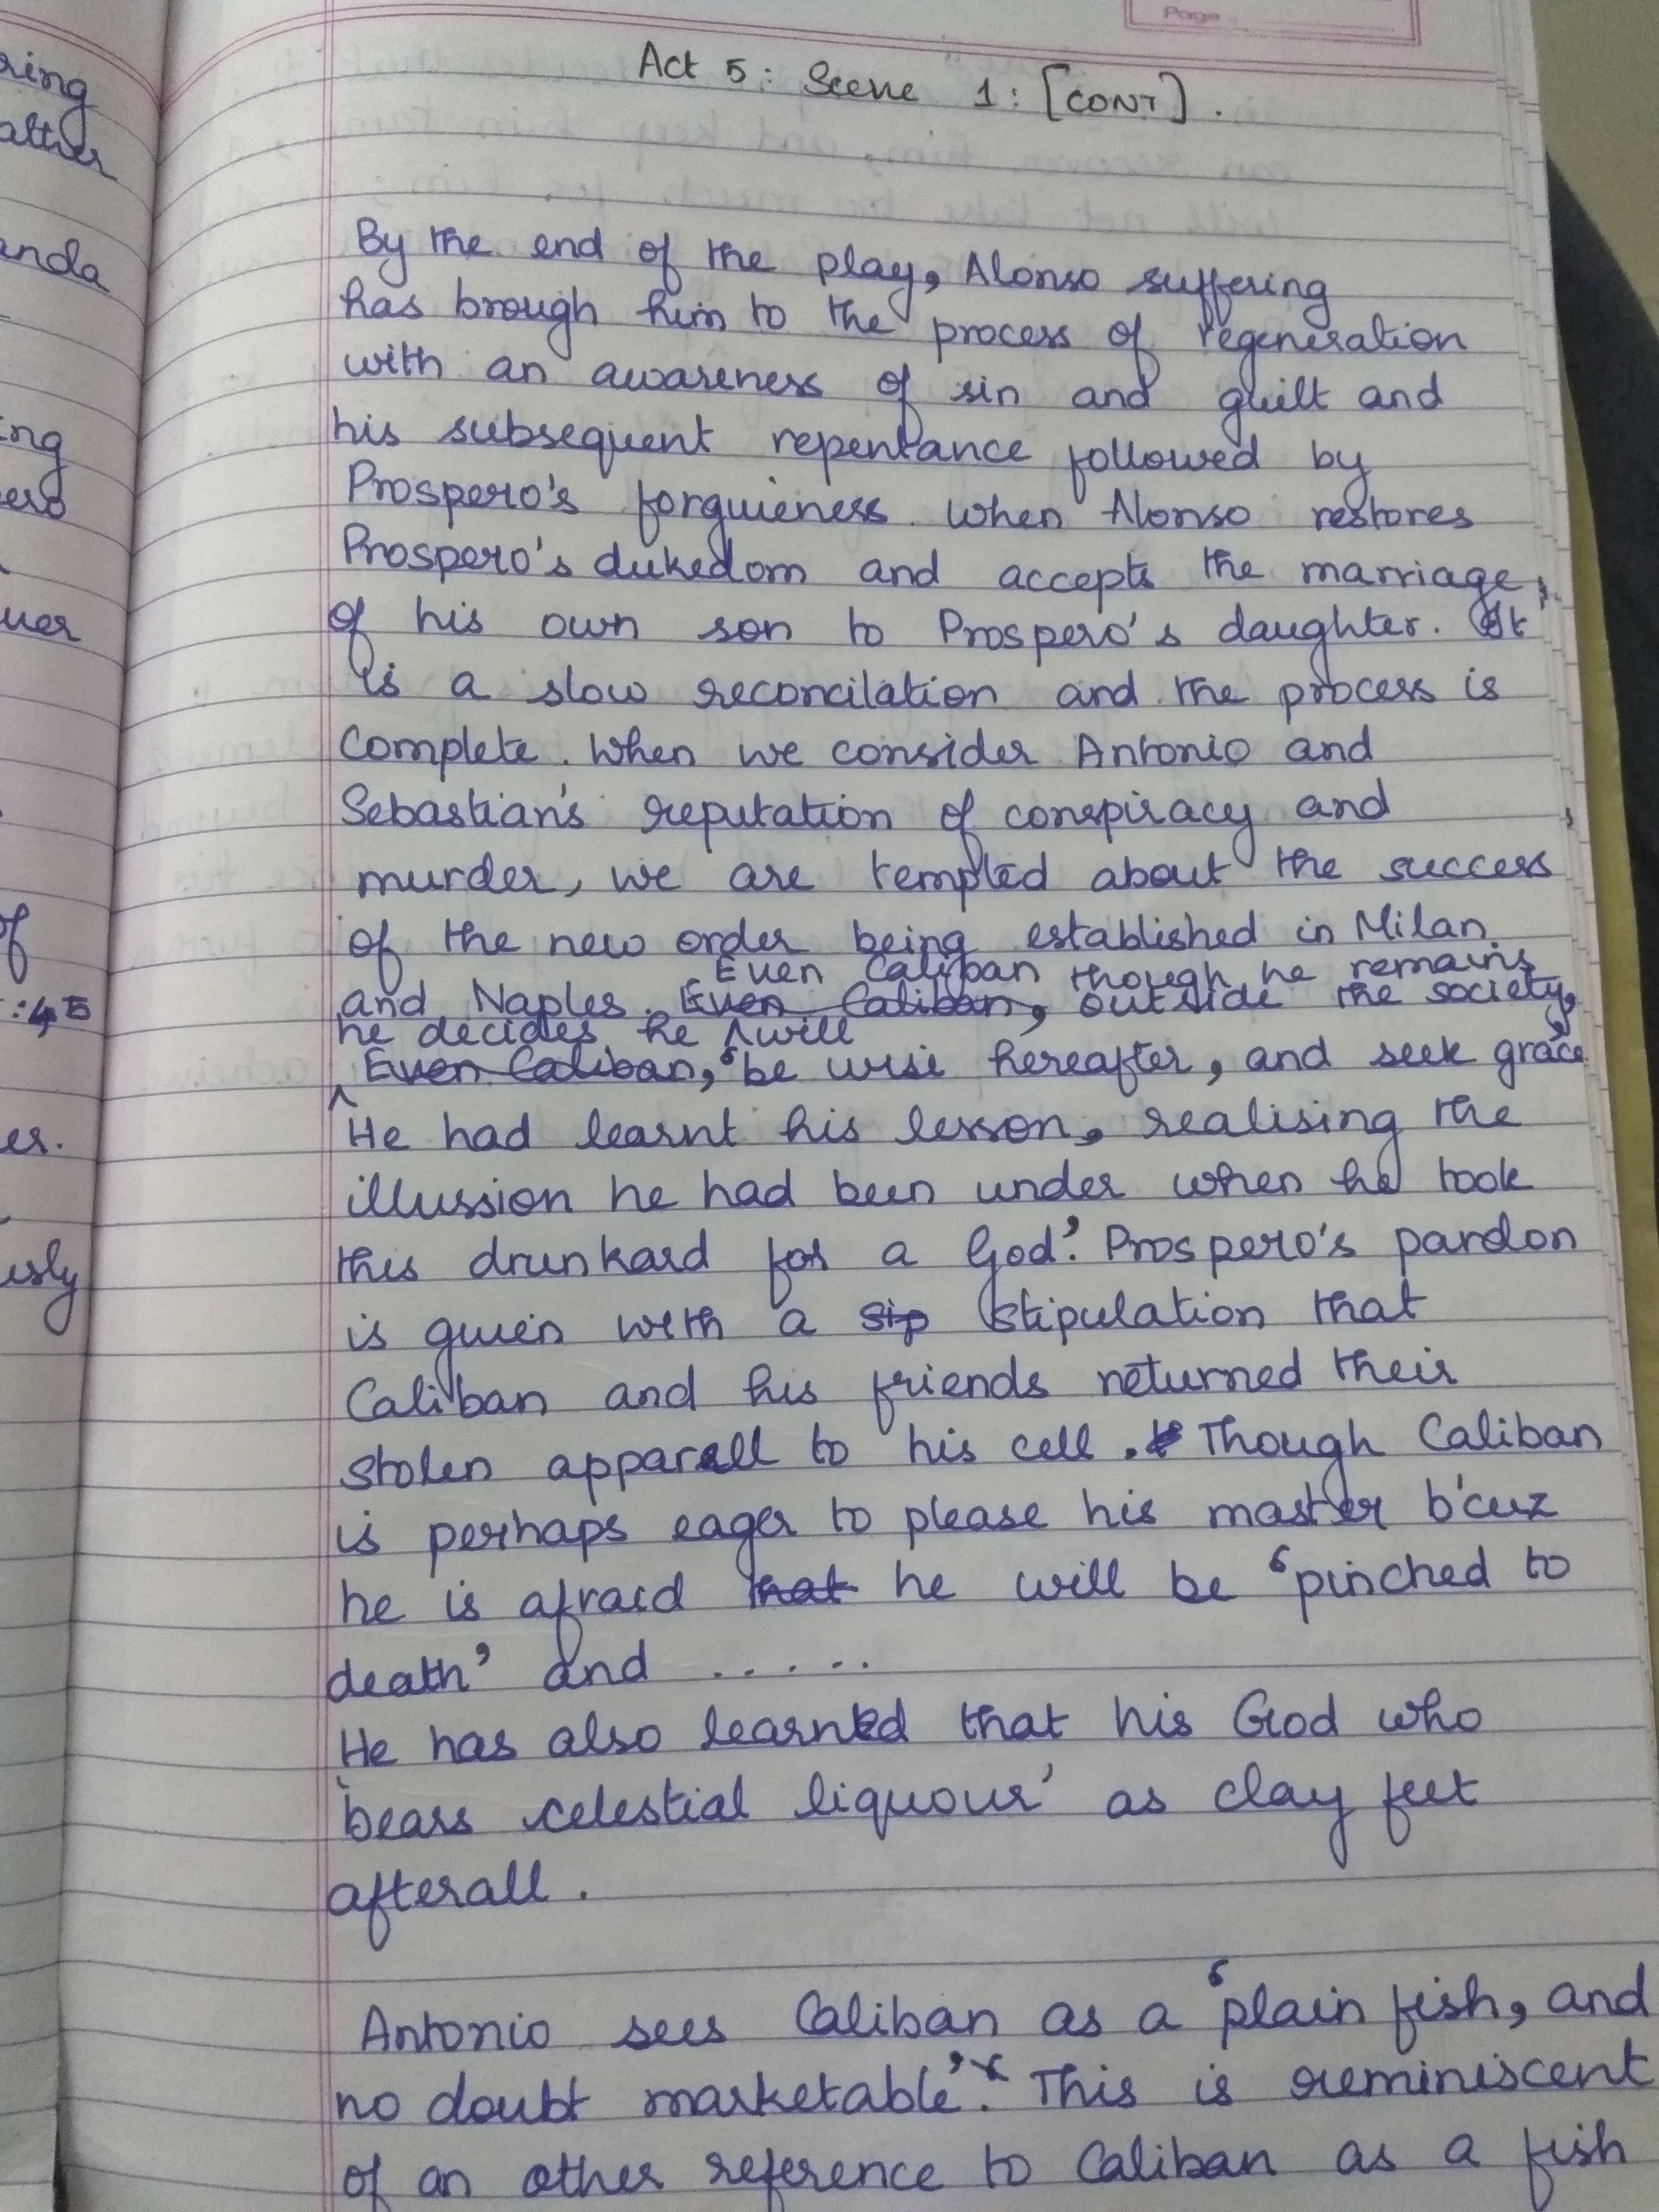 Page
Act 5: Scene 1: [CONT].
By the end of the play, Alonso suffering
has brough him to the process of regeneration
with an awareness of sin and guilt and
his subsequent repentance followed by
Prospero's forguieness. when Alonso restores
Prospero's dukedom and accepts the marriage
of his own son to Prospero's daughter. It
is a slow reconcilation and the process is
complete. When we consider Antonio and
Sebastian's reputation of conspiracy and
murder, we are tempted about the success
of the new order being established in Milan
Even Caliban though he remains
and Naples. Even Caliban, outside the society,
he decides he will
Even Caliban, 'be wise hereafter, and seek grace'
He had learnt his lesson, realising the
illussion he had been under when he took
this drunkard for a God'. Prospero's pardon
is given with a sip stipulation that
Caliban and his friends returned their
stolen apparell to his cell. Though Caliban
is perhaps eager to please his master b'cuz
he is afraid that he will be 'pinched to
death' and .....
He has also learnted that his God who
'bears celestial liquour' as clay feet
afterall.
Antonio sees Caliban as a 'plain fish, and
no doubt marketable'. This is reminiscent
of an other reference to Caliban as a fish
ring
anda
ing
ero
of
:45
er.
usly